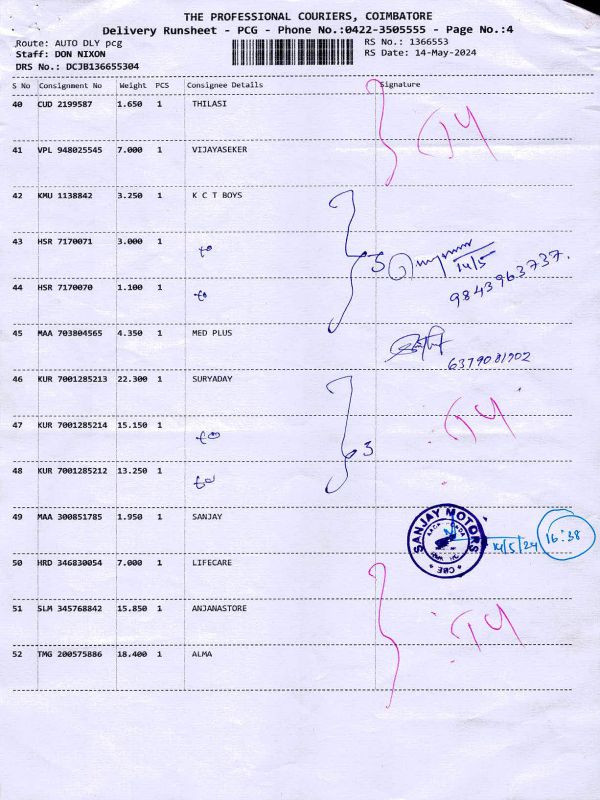 THE PROFESSIONAL COURIERS, COIMBATORE
Delivery Runsheet - PCG - Phone No.:0422-3505555 - Page No.:4
Route: AUTO DLY pcg RS No.: 1366553
Staff: DON NIXON RS Date: 14-May-2024
DRS No.: DCJB136655304
S No Consignment No Weight PCS Consignee Details Signature
40 CUD 2199587 1.650 1 THILASI
41 VPL 948025545 7.000 1 VIJAYASEKER
42 KMU 1138842 3.250 1 K C T BOYS
43 HSR 7170071 3.000 1
14/5
44 HSR 7170070 1.100 1 9843963737.
45 MAA 703804565 4.350 1 MED PLUS
6379081702
46 KUR 7001285213 22.300 1 SURYADAY
47 KUR 7001285214 15.150 1
3
48 KUR 7001285212 13.250 1
49 MAA 300851785 1.950 1 SANJAY
SANJAY MOTORS
CBE
14/5/24 16:38
50 HRD 346830054 7.000 1 LIFECARE
51 SLM 345768842 15.850 1 ANJANASTORE
52 TMG 200575886 18.400 1 ALMA